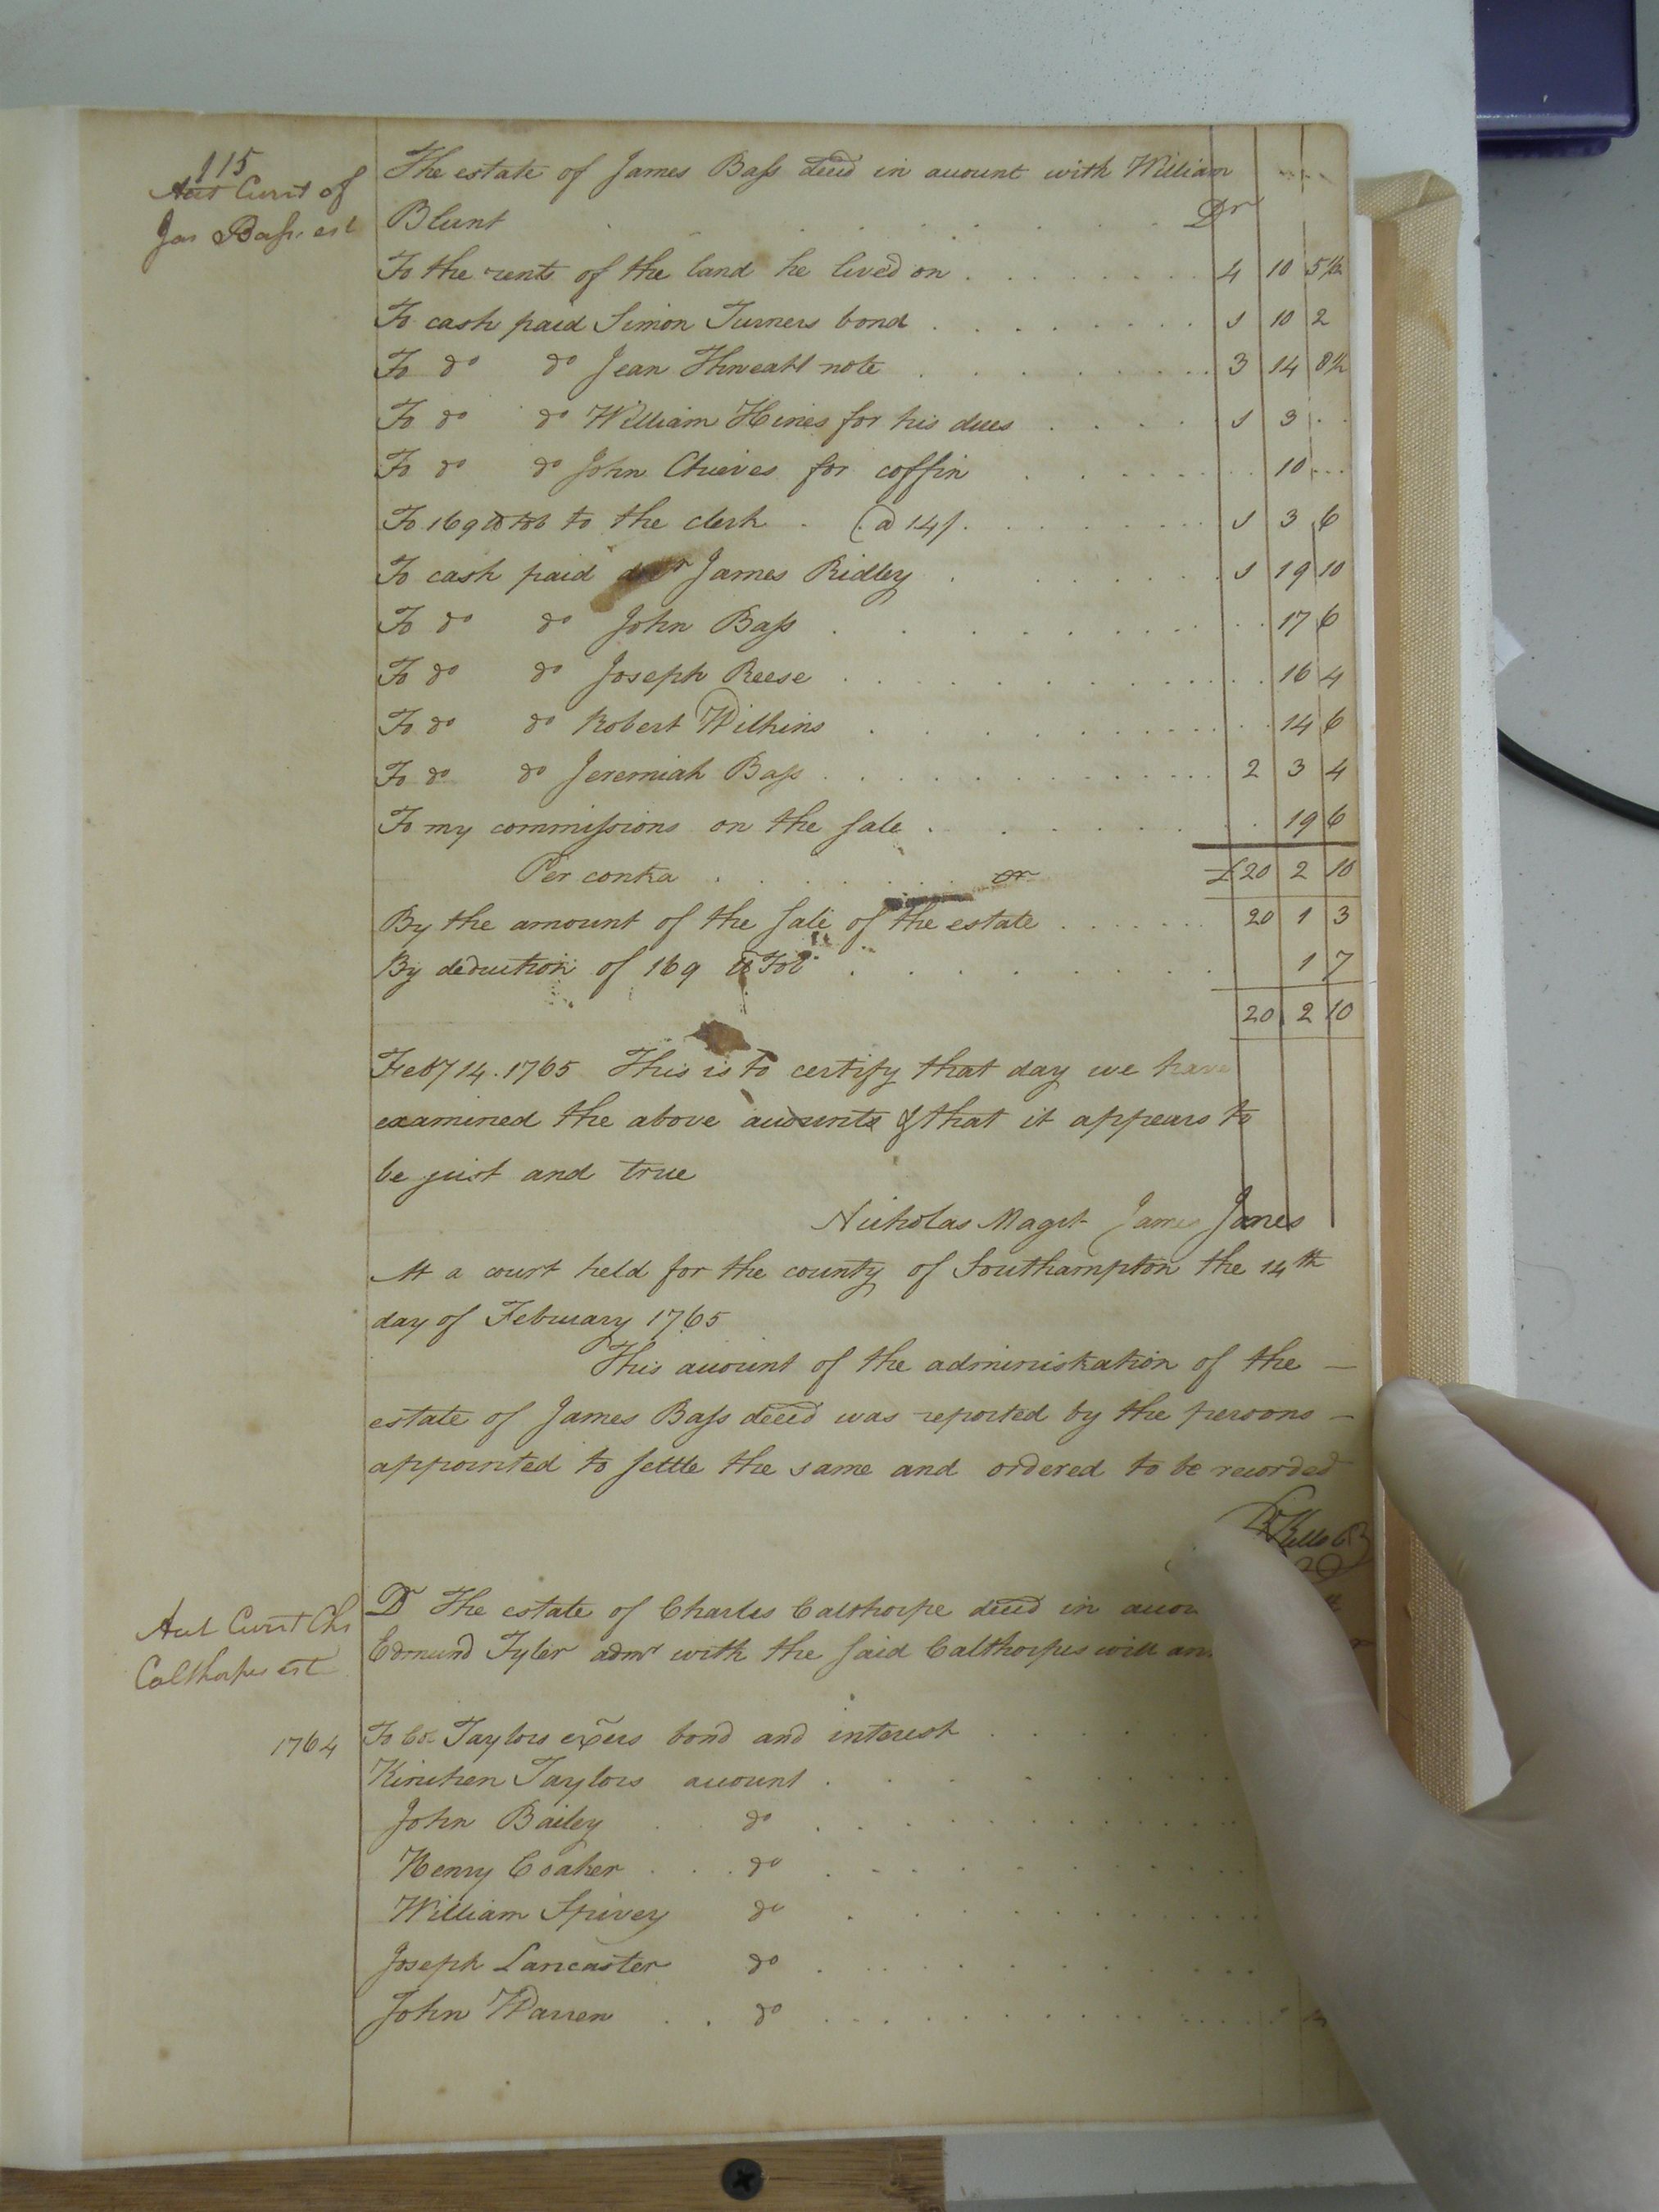 115
Acct Curnt of
Jas Bass. est
The estate of James Bass decd in account with William
Blunt Dr
To the rents of the land he lived on 4 10 5 1/2
To cash paid Simon Turners bond 1 10 2
To do do Jean Thweatt note 3 14 8 1/2
To do do William Hines for his dues 1 3
To do do John Chieves for coffin 10
To 169 lb tob to the clerk (a 14/. 1 3 6
To cash paid James Ridley 1 19 10
To do do John Bass 17 6
To do do Joseph Reese 16 4
To do do Robert Wilkins 14 6
To do do Jeremiah Bass 2 3 4
To my commissions on the sale 19 6
Per contra Cr £ 20 2 10
By the amount of the sale of the estate 20 1 3
By deduction of 169 lb Tob 1 7
20 2 10
Feby 14. 1765 This is to certify that day we have
examined the above accounts & that it appears to
be just and true
Nicholas Maget James Jones
At a court held for the county of Southampton the 14th
day of February 1765
This account of the administration of the
estate of James Bass decd was reported by the persons
appointed to settle the same and ordered to be recorded
Kello
Acct Curnt Chs
Calthorpes est
Dr The estate of Charles Calthorpe decd in
Edmund Tyler admr with the said Calthorpes will
1764
To Taylors exers bond and interest
Kinchen Taylors account
John Bailey do
Henry Coaker do
William Spivey do
Joseph Lancaster do
John Warren do